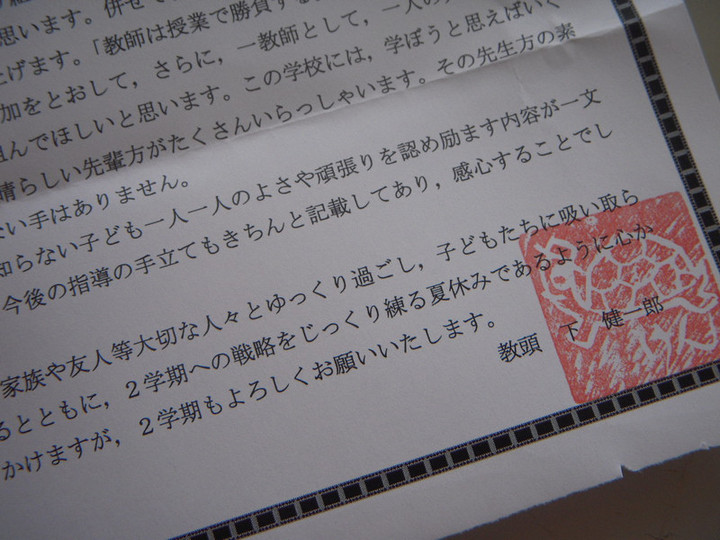 思います。併せて
上げます。「教師は授業で勝負する
加をとおして，さらに，一教師として，一人の
組んでほしいと思います。この学校には，学ぼうと思えばいく
晴らしい先輩方がたくさんいらっしゃいます。その先生方の素
ない手はありません。
知らない子ども一人一人のよさや頑張りを認め励ます内容が一文
今後の指導の手立てもきちんと記載してあり，感心することでし
家族や友人等大切な人々とゆっくり過ごし，子どもたちに吸い取ら
るとともに，２学期への戦略をじっくり練る夏休みであるように心か
かけますが，２学期もよろしくお願いいたします。
教頭　下　健一郎